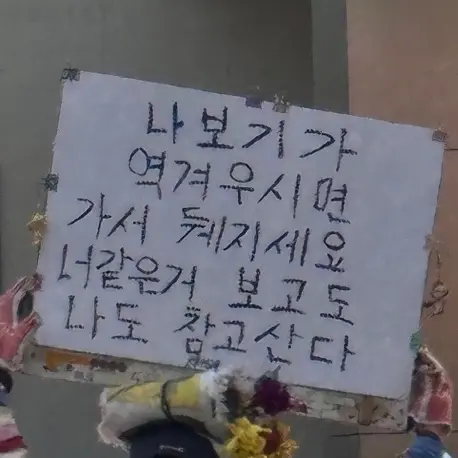 나보기가
역겨우시면
가서 뒈지세요
너같은거 보고도
나도 참고산다